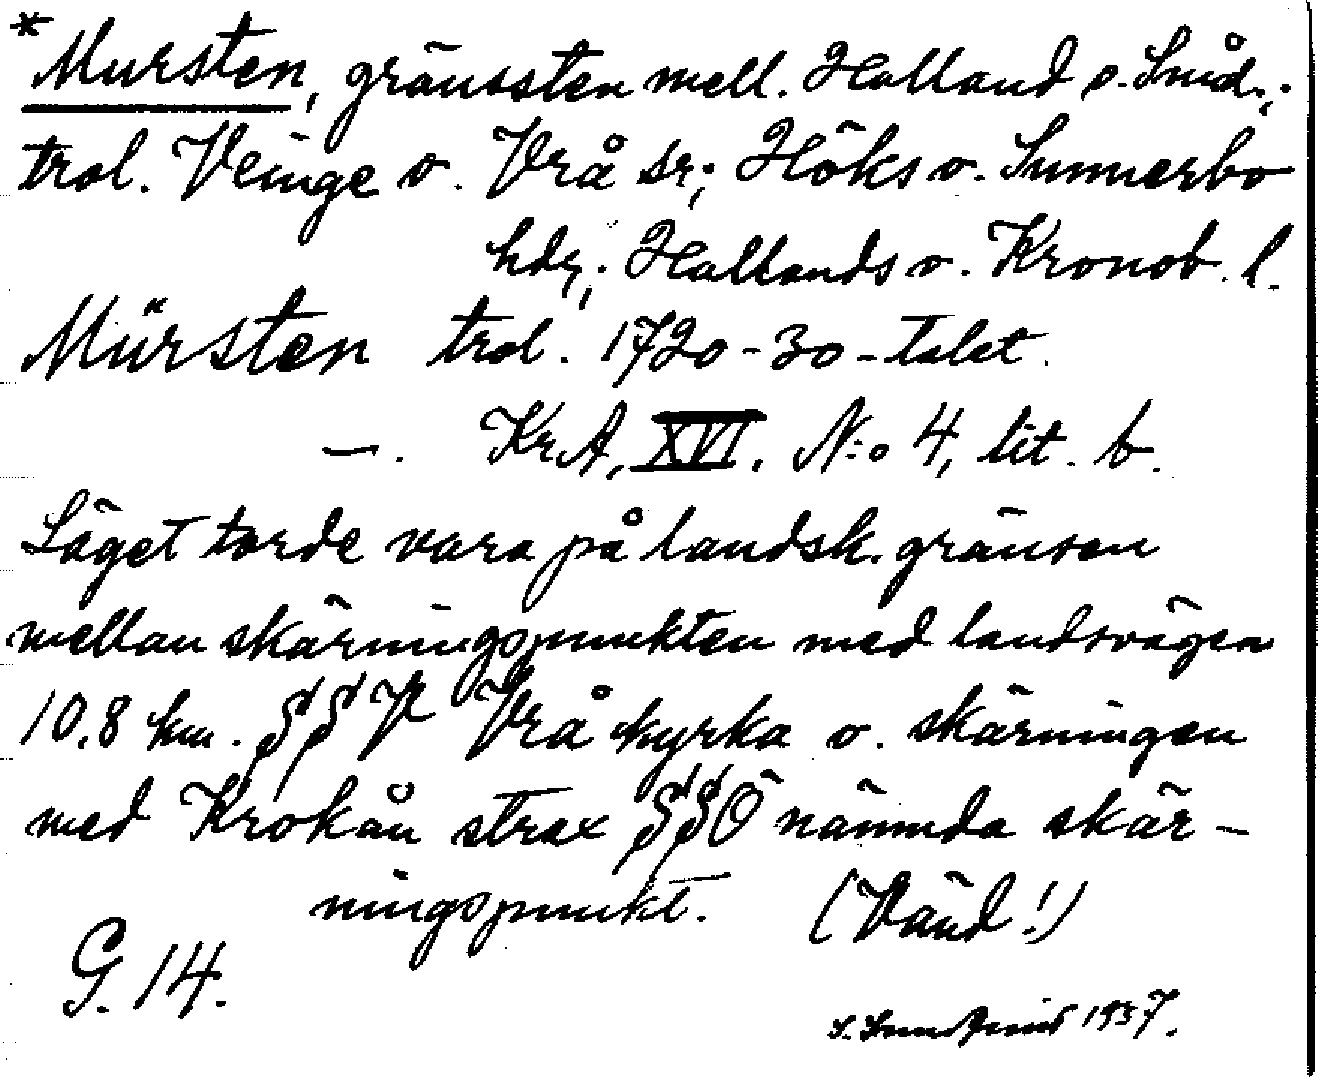 *Mursten, gränssten mell. Halland o. Småd.;
trol. Veinge o. Vrå sr; Höks o. Sunnerbo
hdr; Hallands o. Kronob. l.
Mürsten trol. 1720-30-talet.
—. KrA, XVI. N:o 4, lit. b.
Läget torde vara på landsk. gränsen
mellan skärningspunkten med landsvägen
10.8 km. SSV Vrå kyrka o. skärningen
med Krokån strax SSÖ nämnda skär-
ningspunkt. (Vänd!)
G. 14.
1937.